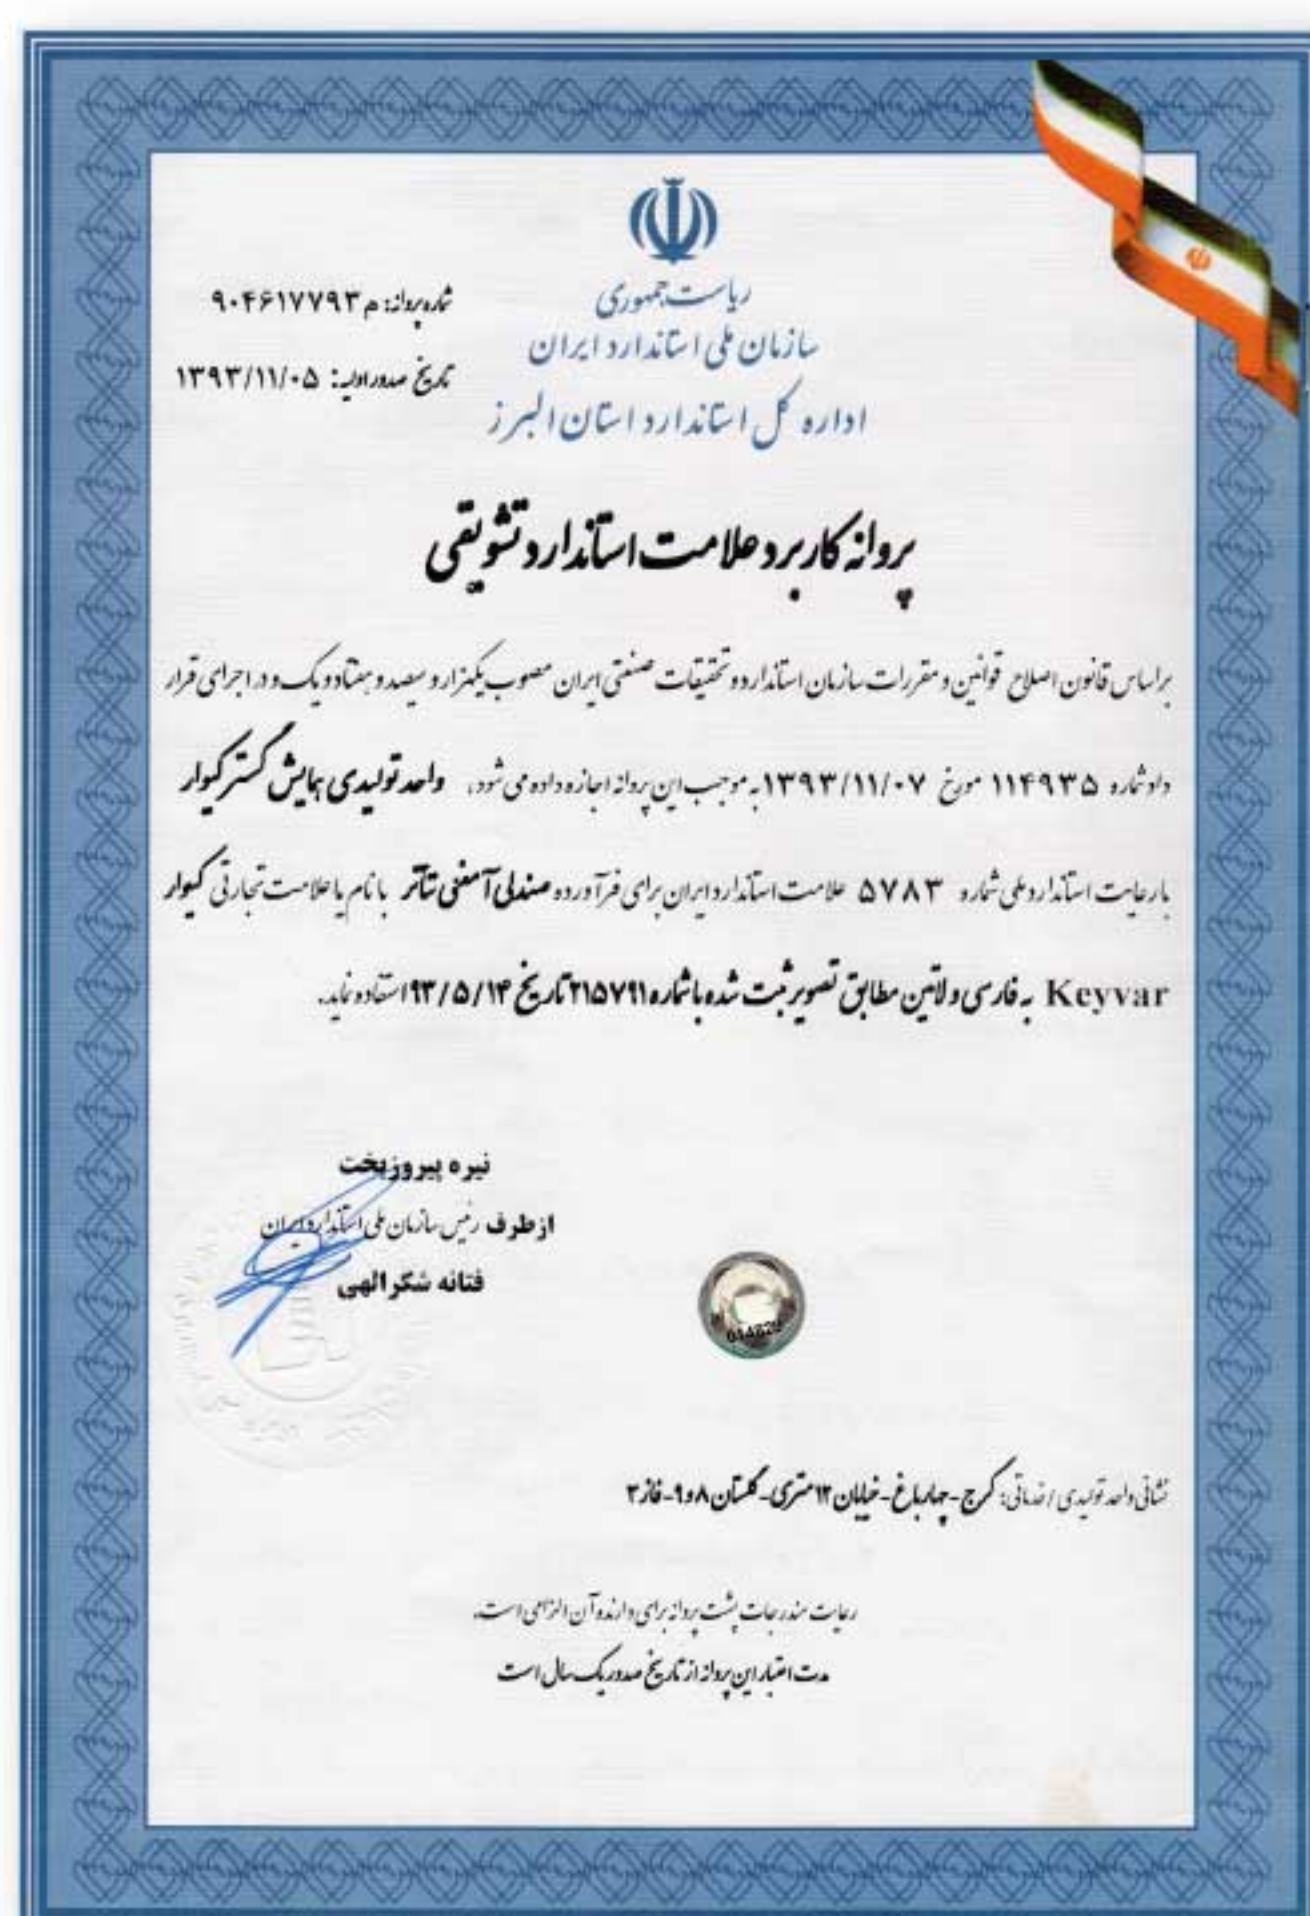 ریاست جمهوری
سازمان ملی استاندارد ایران
اداره کل استاندارد استان البرز
شماره پروانه: م ۹۰۴۶۱۷۷۹۳
تاریخ صدور اولیه: ۱۳۹۳/۱۱/۰۵
پروانه کاربرد علامت استاندارد تشویقی
براساس قانون اصلاح قوانین و مقررات سازمان استاندارد و تحقیقات صنعتی ایران مصوب یکهزار و سیصد و هفتاد و یک و در اجرای قرار
داد شماره ۱۱۴۹۳۵ مورخ ۱۳۹۳/۱۱/۰۷ به موجب این پروانه اجازه داده می شود، واحد تولیدی همایش گستر کیوار
با رعایت استاندارد ملی شماره ۵۷۸۳ علامت استاندارد ایران برای فرآورده صندلی آمفی تئاتر با نام یا علامت تجارتی کیوار
Keyvar به فارسی و لاتین مطابق تصویر ثبت شده با شماره ۲۱۵۷۹۱ تاریخ ۹۳/۵/۱۴ استفاده نماید.
نیره پیروزبخت
از طرف رئیس سازمان ملی استاندارد ایران
فتانه شکرالهی
نشانی واحد تولیدی / خدماتی: کرج - چهارباغ - خیابان ۱۲ متری - گلستان ۸ و ۹ - فاز ۳
رعایت مندرجات پشت پروانه برای دارنده آن الزامی است.
مدت اعتبار این پروانه از تاریخ صدور یک سال است